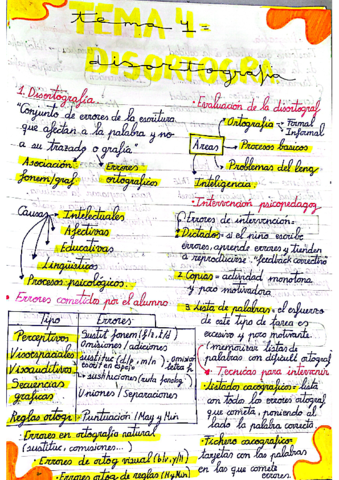 TEMA 4=
DISORTOGRAFIA
disortografía
1. Disortografía.
"Conjunto de errores de la escritura
que afectan a la palabra y no
a su trazado o grafía."
Asociación
fonem/graf
Errores
ortográficos
Causas
Intelectuales
Afectivas
Educativas
Lingüísticos
Procesos psicológicos.
• Errores cometidos por el alumno
Tipo Errores
Perceptivos
Omisiones / adiciones
Visoespaciales
Visoauditivos
Secuencias
gráficas
Uniones / Separaciones
Reglas ortogr
Puntuación / May y Min
· Errores en ortografía natural
· Errores de ortog visual (b/v, y/ll)
· Errores ortog de reglas (M y Min)
• Evaluación de la disortograf
Áreas
Ortografía
Formal
Informal
Procesos básicos
Problemas del leng
Inteligencia.
• Intervención psicopedag
Errores de intervención=
Dictados= si el niño escribe
errores, aprende errores y tienden
a reproducirse. "feedback correctivo
2. Copias= actividad monótona
y poco motivadora
3. Lista de palabras= el esfuerzo
de este tipo de tarea es
excesivo y poco motivante.
(memorizar listas de
palabras con dificult ortograf
• Técnicas para intervenir
· Listados cacográficos= lista
con todo los errores ortograf
que cometa, poniendo al
lado la palabra correcta
· Fichero cacográfico=
tarjetas con las palabras
en las que comete
errores.